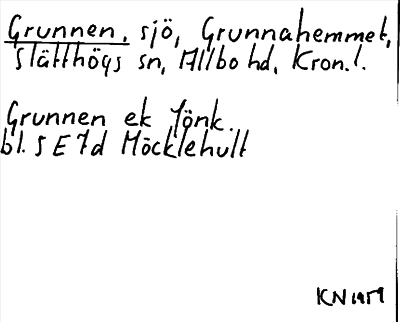 Grunnen, sjö, Grunnahemmet,
Slätthögs sn, Allbo hd, Kron.l.
Grunnen ek Jönk.
bl. 5 E 7d Möcklehult
KN